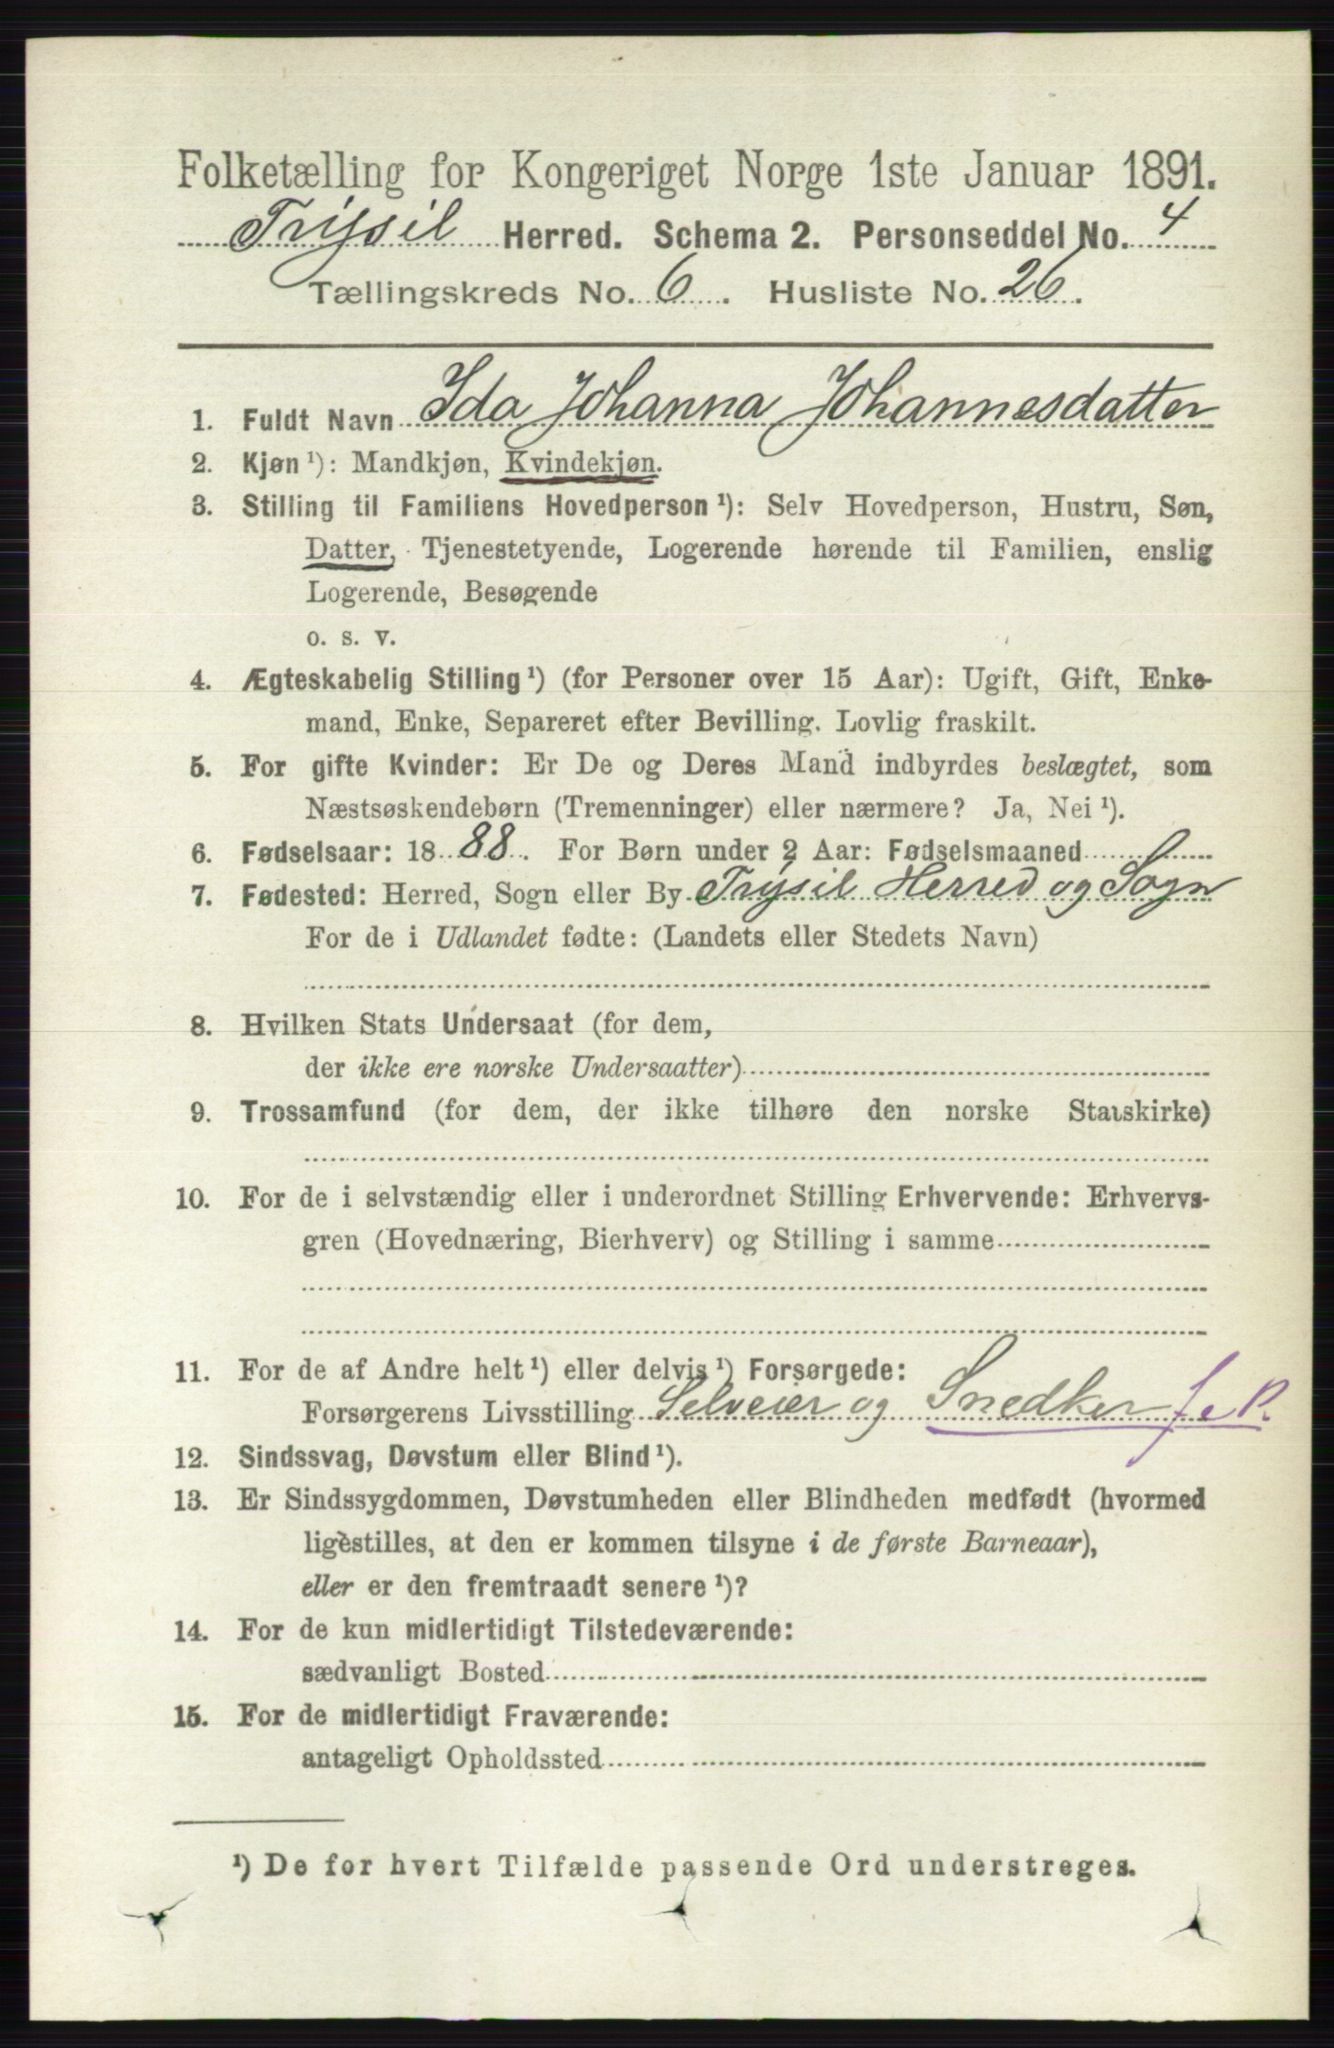 Folketælling for Kongeriget Norge 1ste Januar 1891.
Trysil Herred. Schema 2. Personseddel No. 4
Tællingskreds No. 6. Husliste No. 26.
1. Fuldt Navn Ida Johanna Johannesdatter
2. Kjøn ¹): Mandkjøn, Kvindekjøn.
3. Stilling til Familiens Hovedperson ¹): Selv Hovedperson, Hustru, Søn,
Datter, Tjenestetyende, Logerende hørende til Familien, enslig
Logerende, Besøgende
o. s. v.
4. Ægteskabelig Stilling ¹) (for Personer over 15 Aar): Ugift, Gift, Enke-
mand, Enke, Separeret efter Bevilling. Lovlig fraskilt.
5. For gifte Kvinder: Er De og Deres Mand indbyrdes beslægtet, som
Næstsøskendebørn (Tremenninger) eller nærmere? Ja, Nei ¹).
6. Fødselsaar: 1888. For Børn under 2 Aar: Fødselsmaaned
7. Fødested: Herred, Sogn eller By Trysil Herred og Sogn
For de i Udlandet fødte: (Landets eller Stedets Navn)
8. Hvilken Stats Undersaat (for dem,
der ikke ere norske Undersaatter)
9. Trossamfund (for dem, der ikke tilhøre den norske Statskirke)
10. For de i selvstændig eller i underordnet Stilling Erhvervende: Erhvervs-
gren (Hovednæring, Bierhverv) og Stilling i samme
11. For de af Andre helt ¹) eller delvis ¹) Forsørgede:
Forsørgerens Livsstilling Selveier og Snedker f. e. P.
12. Sindssvag, Døvstum eller Blind ¹).
13. Er Sindssygdommen, Døvstumheden eller Blindheden medfødt (hvormed
ligestilles, at den er kommen tilsyne i de første Barneaar),
eller er den fremtraadt senere ¹)?
14. For de kun midlertidigt Tilstedeværende:
sædvanligt Bosted
15. For de midlertidigt Fraværende:
antageligt Opholdssted
¹) De for hvert Tilfælde passende Ord understreges.